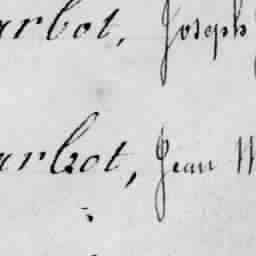 arbot, Joseph
arbot, Jean M